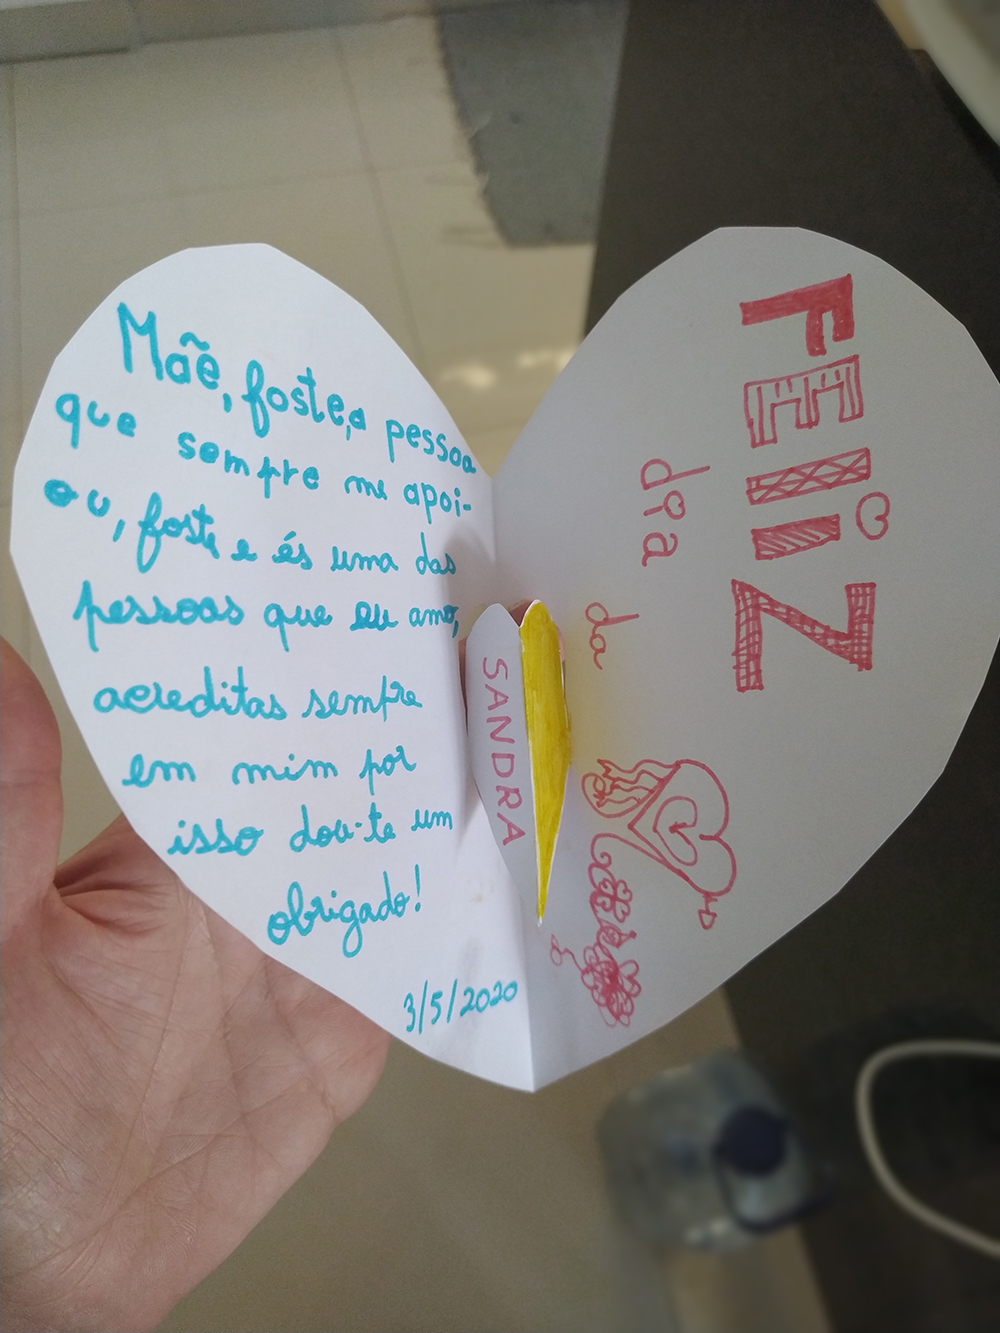 Mãe, foste,a pessoa
que sempre me apoi-
ou, foste e és uma das
pessoas que eu amo,
acreditas sempre
em mim por
isso dou-te um
obrigado!
3/5/2020
SANDRA
FELIZ
dia
da